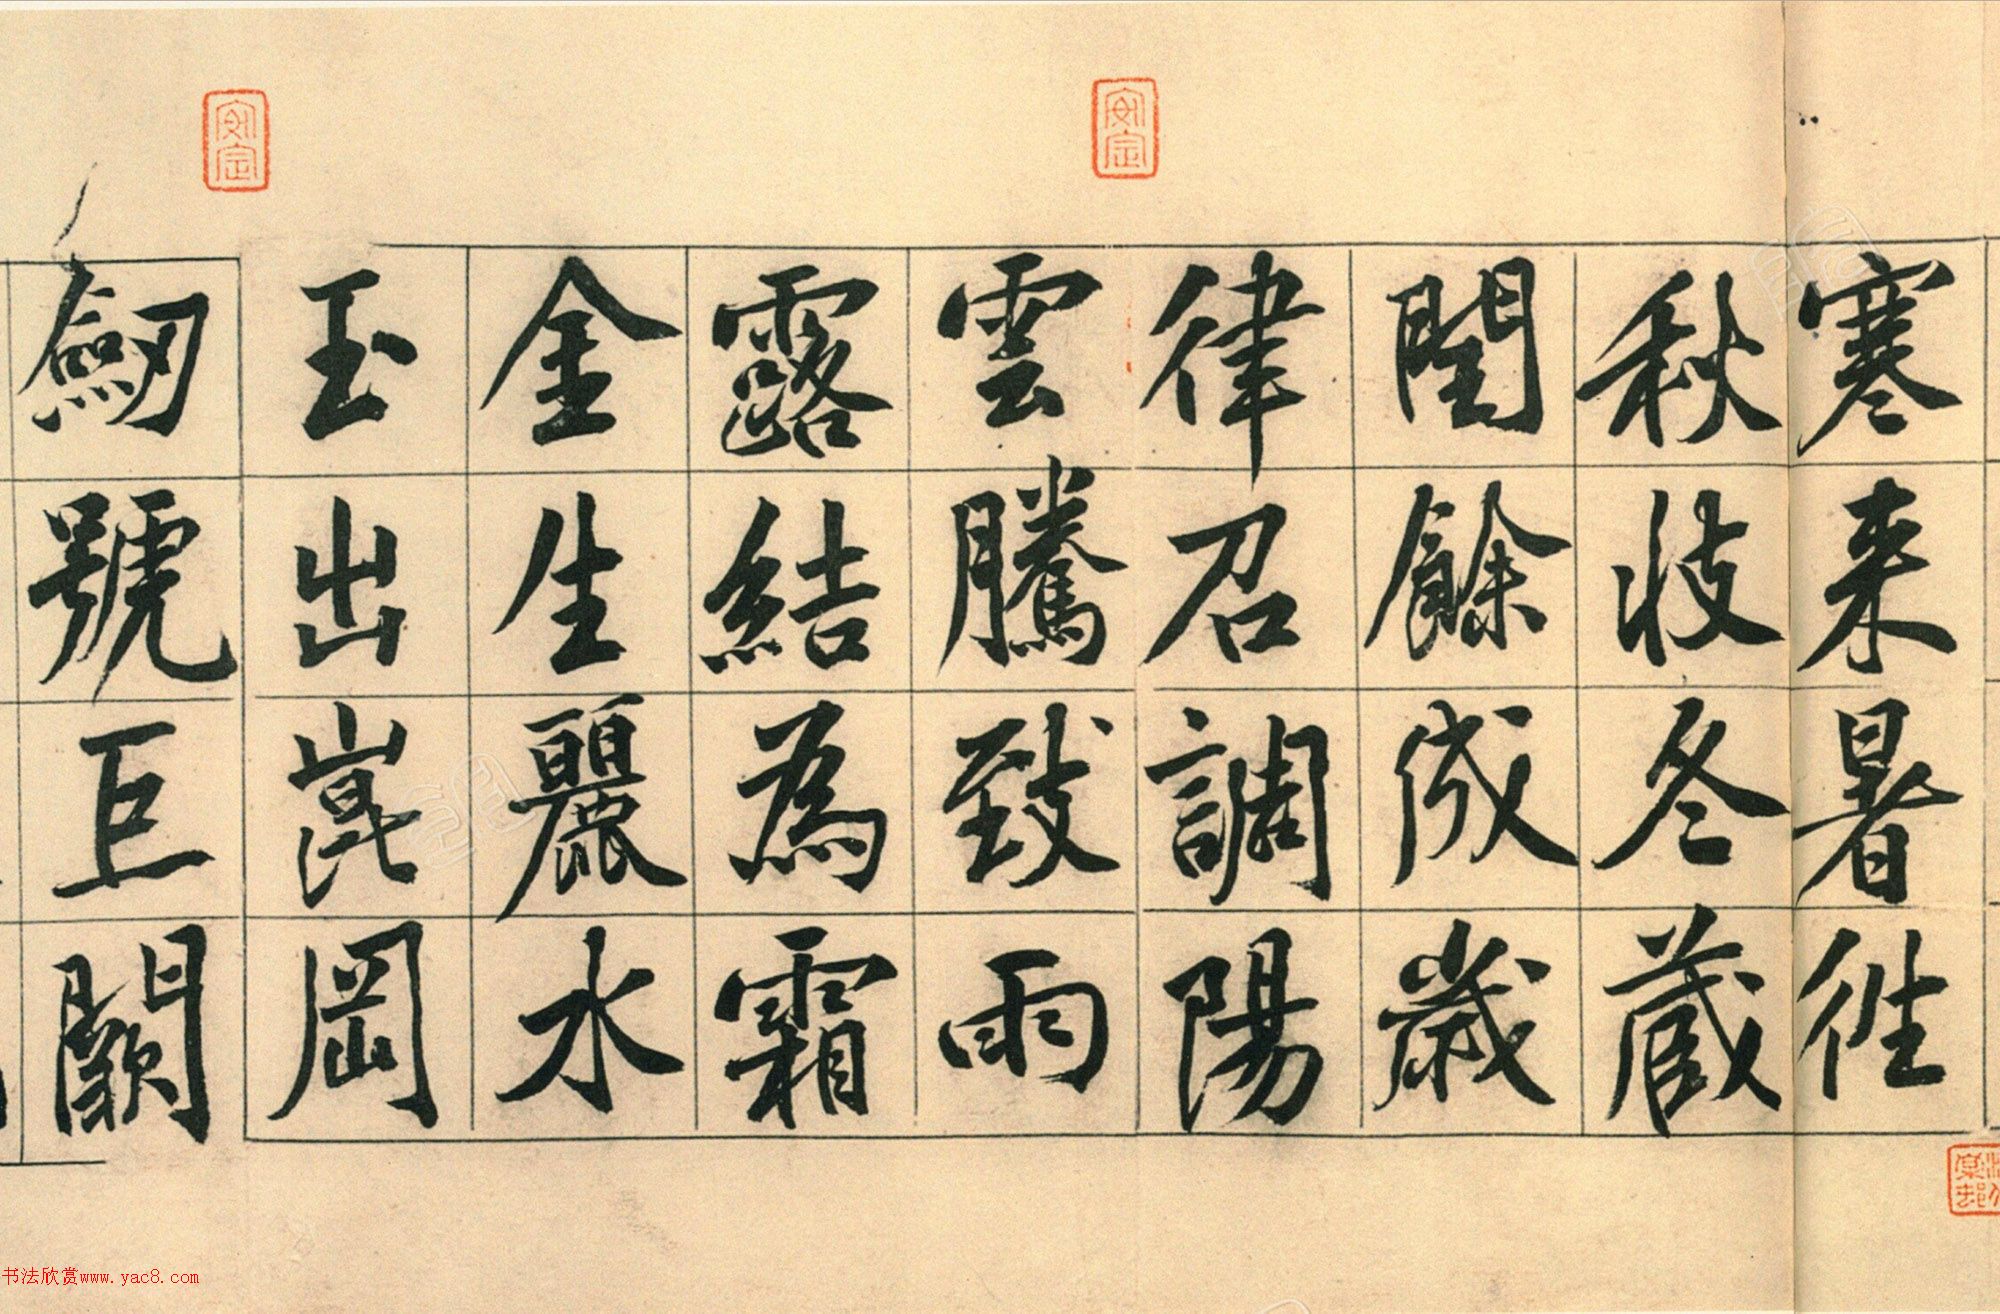 寒来暑往
秋收冬藏
閏餘成歲
律召調陽
雲騰致雨
露結為霜
金生麗水
玉出崑岡
劒號巨闕
安定
安定
书法欣赏www.yac8.com